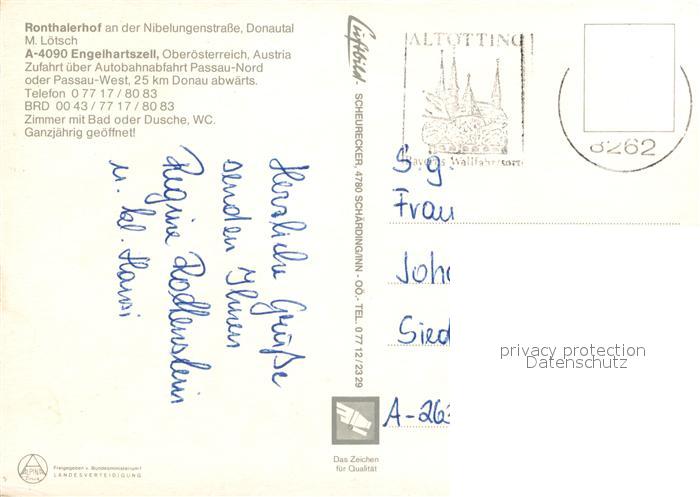 Ronthalerhof an der Nibelungenstraße, Donautal
M. Lötsch
A-4090 Engelhartszell, Oberösterreich, Austria
Zufahrt über Autobahnabfahrt Passau-Nord
oder Passau-West, 25 km Donau abwärts.
Telefon 0 77 17 / 80 83
BRD 00 43 / 77 17 / 80 83
Zimmer mit Bad oder Dusche, WC.
Ganzjährig geöffnet!
Herzliche Grüße
senden Ihnen
Regine Rodlenstein
u. kl. Hansi
ALPINA
Druck
Freigegeben v. Bundesministerium f.
LANDESVERTEIDIGUNG
Luftbild-
SCHEURECKER, 4780 SCHÄRDING/INN - OÖ.- TEL. 0 77 12 / 23 29
Das Zeichen
für Qualität
ALTÖTTING
Bayerns Wallfahrtsort
8262
S.g.
Frau
Joh
Sied
A-263
privacy protection
Datenschutz